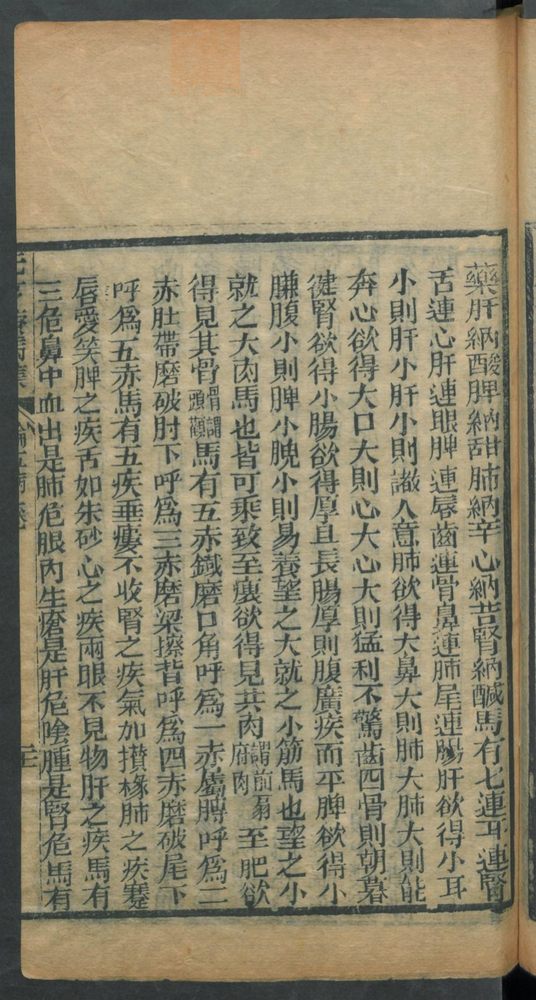 藥肝納酸脾納甜肺納辛心納苦腎納鹹馬有七連耳連腎
舌連心肝連眼脾連唇齒連骨鼻連肺尾連腸肝欲得小耳
小則肝小肝小則識人意肺欲得大鼻大則肺大肺大則能
奔心欲得大口大則心大心大則猛利不驚齒四骨則朝暮
健腎欲得小腸欲得厚且長腸厚則腹廣疾而平脾欲得小
膁腹小則脾小脾小則易養望之大就之小筋馬也望之小
就之大肉馬也皆可乘致至瘦欲得見其肉謂前肩府肉至肥欲
得見其骨謂頭顴馬有五赤鐵磨口角呼爲一赤磨膊呼爲二
赤肚帶磨破肘下呼爲三赤磨梁擦背呼爲四赤磨破尾下
呼爲五赤馬有五疾垂瘻不收腎之疾氣加攅椽肺之疾蹇
唇愛笑脾之疾舌如朱砂心之疾兩眼不見物肝之疾馬有
三危鼻中血出是肺危眼內生瘡是肝危陰腫是腎危馬有